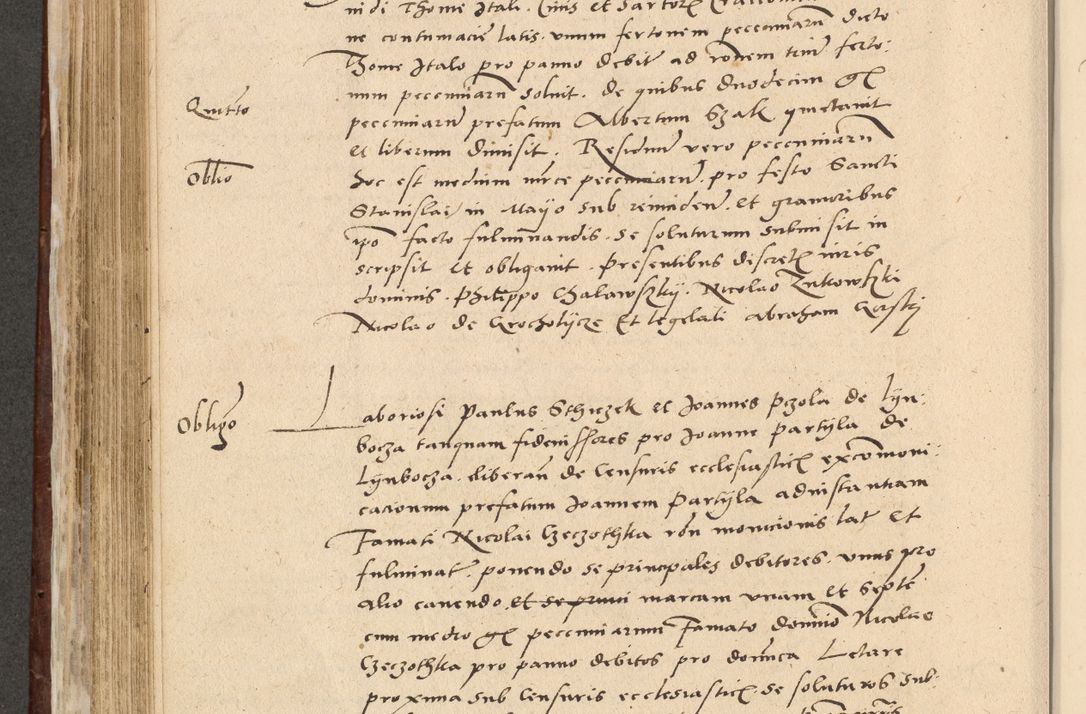 ni di Thome Itali. Civis et Sartor
ne contumacie latis. unum fertonem pecceniarū dicto
Thome Italo pro panno debit ad rōnem triū ferto:
num pecceniarū solvit. de quibus duodecim gr
Quitto
pecceniarū prefatum Albertum Szak quietavit
et liberum dimisit. Residuū vero pecceniarū
Oblio
hoc est medium mrce pecceniarū. pro festo Sancti
Stanislai in Mayo sub reinciden. et gravioribus
ipō facto fulminandis. se soluturum submisit in
scripsit et obligavit. Presentibus discretis viris
dominis. Philippo Chalawskij. Nicolao Zukowski
Nicolao de Grochotijcze Et legelali abraham
Obligo
Laboriosi Paulus Sthczek et Joannes Pczola de Lijn:
bocza tanquam fideiussores pro Joanne Partijla de
Lijnbocza. liberan de Censuris ecclesiasticis excōmoni:
cationum prefatum Joannem Partijla ad instantiam
Famati Nicolai Czeczothka rōn monicionis lat et
fulminat. ponendo se principales debitores. unus pro
alio cavendo. et se privi marcam unam et septē
cum medio gr pecceniarum Famato domino Nicolao
Czeczothka pro panno debitos pro domica Letare
proxima sub Censuris ecclesiasticis se soluturos sub: